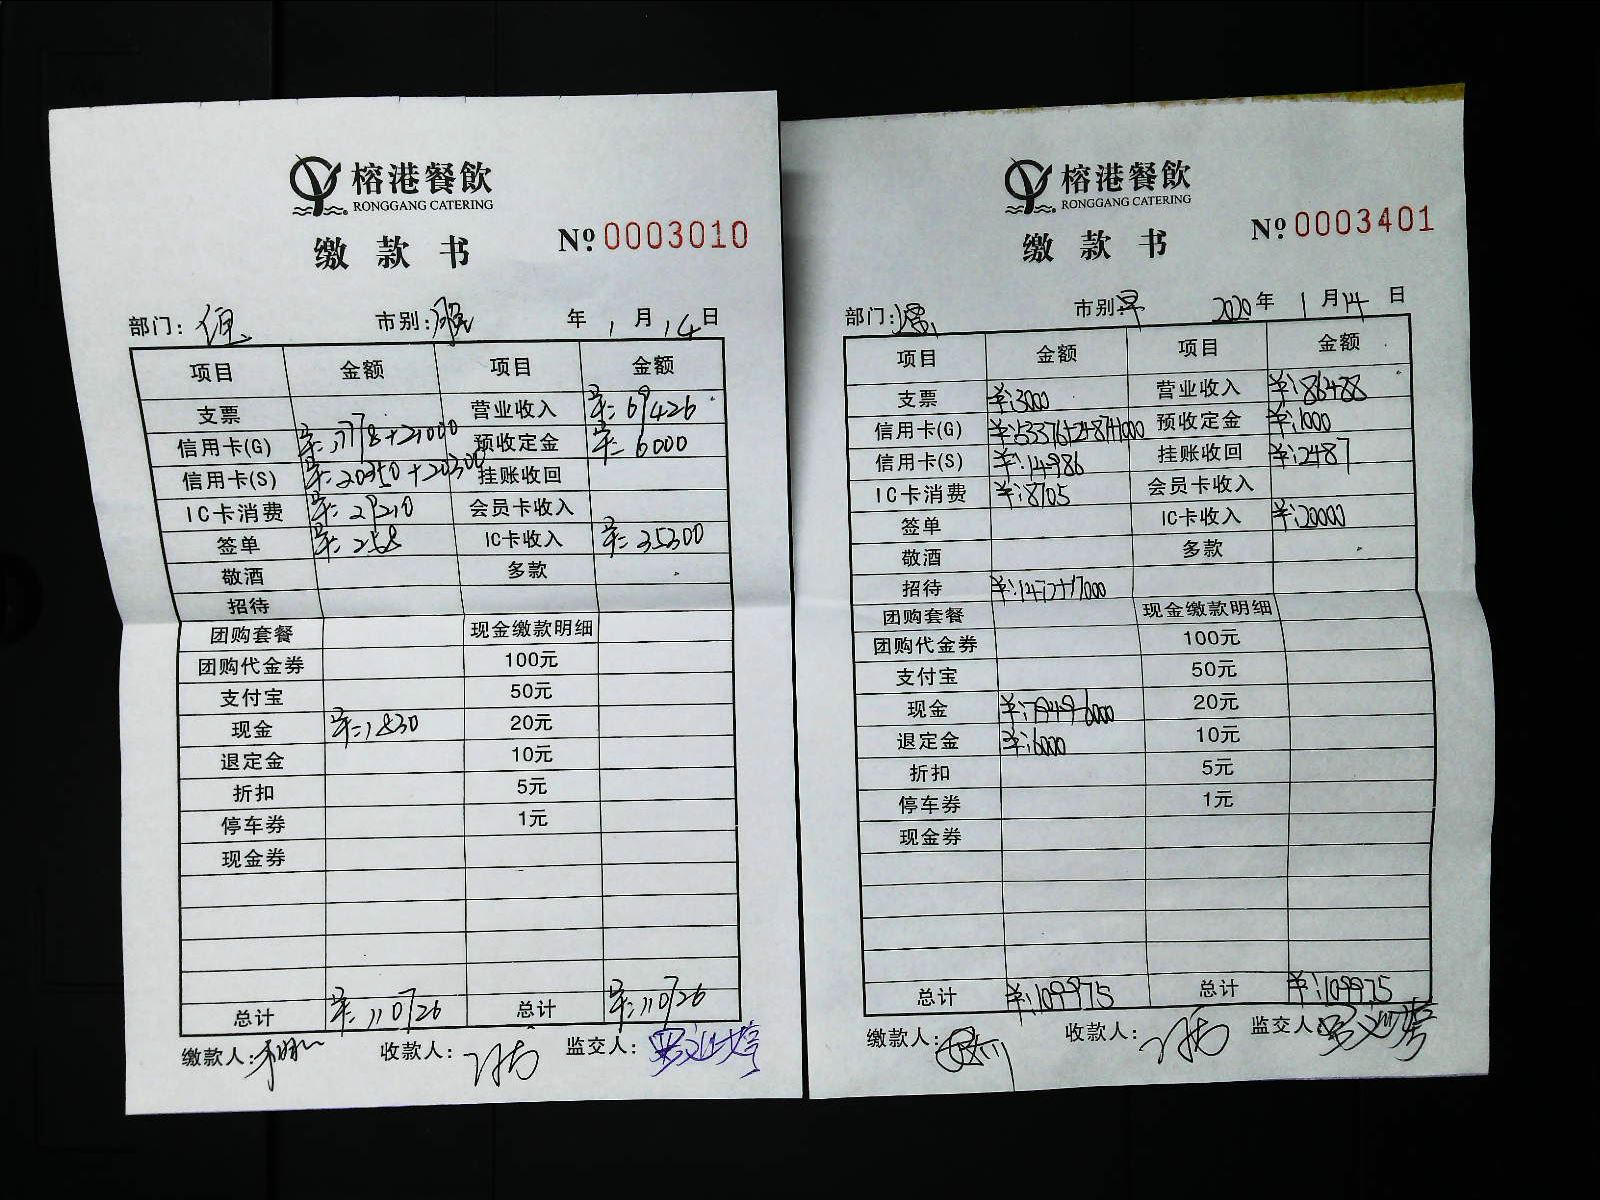 榕港餐飲
RONGGANG CATERING
缴款书
№ 0003010
部门: 市别: 年 1 月 14 日
项目 金额 项目 金额
支票 营业收入 69426
信用卡(G) 预收定金 6000
信用卡(S) 20350+20300 挂账收回
IC卡消费 29210 会员卡收入
签单 258 IC卡收入 35300
敬酒 多款
招待
团购套餐 现金缴款明细
团购代金券 100元
支付宝 50元
现金 1830 20元
退定金 10元
折扣 5元
停车券 1元
现金券
总计 110726 总计 110726
缴款人: 收款人: 监交人:
榕港餐飲
RONGGANG CATERING
缴款书
№ 0003401
部门: 市别: 早 2020 年 1 月 14 日
项目 金额 项目 金额
支票 ¥:3000 营业收入 ¥:86488
信用卡(G) 预收定金 ¥:1000
信用卡(S) ¥:14986 挂账收回 ¥:2487
IC卡消费 ¥:8705 会员卡收入
签单 IC卡收入 ¥:20000
敬酒 多款
招待
团购套餐 现金缴款明细
团购代金券 100元
支付宝 50元
现金 20元
退定金 ¥:6000 10元
折扣 5元
停车券 1元
现金券
总计 ¥:109975 总计 ¥:109975
缴款人: 收款人: 监交人: